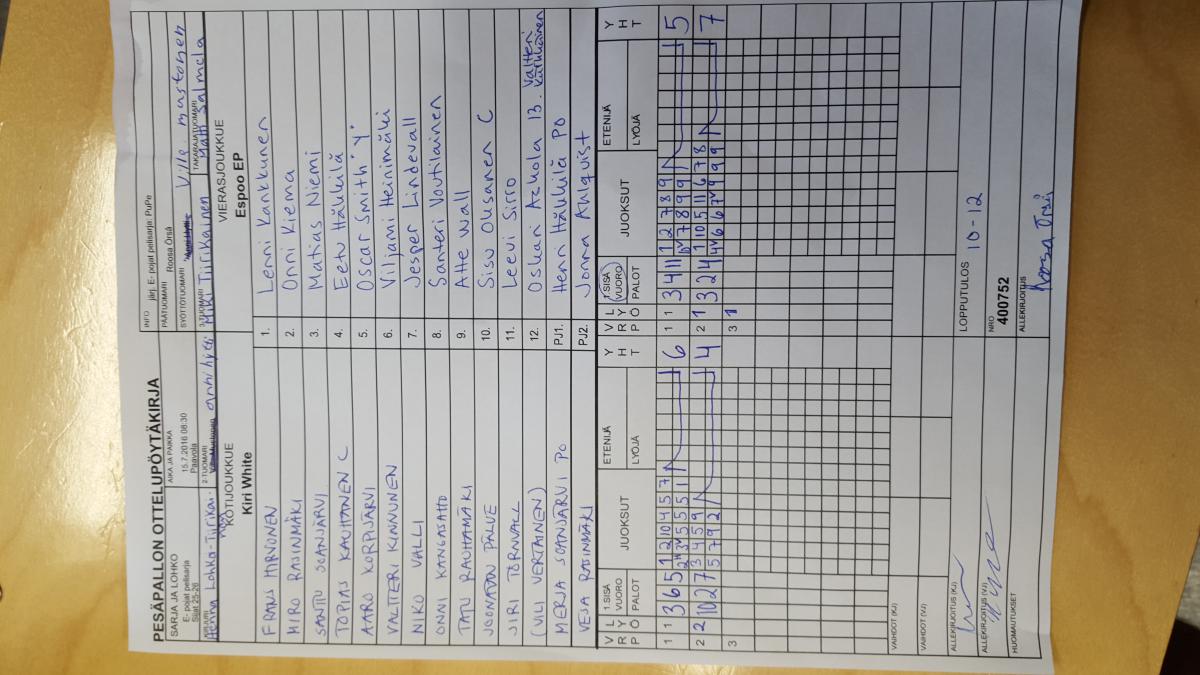 PESÄPALLON OTTELUPÖYTÄKIRJA
INFO järj. E- pojat pelisarja: PuPe
SARJA JA LOHKO
E- pojat pelisarja
Sijat 25-26
AIKA JA PAIKKA
15.7.2016 08:30
Paavola
PÄÄTUOMARI Roosa Örsä
SYÖTTÖTUOMARI Ville mustonen
KIRJURI
Henna Lohka-Tiirikai-
nen
2-TUOMARI
anni hytti
3-TUOMARI
Miki Tiirikainen
TAKARAJATUOMARI
Matti Salmela
KOTIJOUKKUE
Kiri White
VIERASJOUKKUE
Espoo EP
FRANS HIRVONEN 1. Lenni Kankkunen
MIRO RASINMÄKI 2. Onni Kiema
SANTU SOANJÄRVI 3. Matias Niemi
TOPIAS KAUHANEN C 4. Eetu Häkkilä
AARO KORPIJÄRVI 5. Oscar Smith "y"
VALTTERI KINNUNEN 6. Viljami Heinimäki
NIKO VALLI 7. Jesper Lindevall
ONNI KANGASAHO 8. Santeri Voutilainen
TATU RAUHAMÄKI 9. Atte Wall
JOONATAN PALVE 10. Sisu Oksanen C
JIRI TORNVALL 11. Leevi Siro
(VILI VERTAINEN) 12. Oskari Azkola 13. Valtteri Kärkkäinen
MERJA SOANJÄRVI PO PJ1. Henni Häkkilä PO
VESA RASINMÄKI PJ2. Jonna Ahlquist
V R P L Y Ö 1.SISÄ VUORO PALOT JUOKSUT ETENIJÄ LYÖJÄ Y H T
V R P L Y Ö 1.SISÄ VUORO PALOT JUOKSUT ETENIJÄ LYÖJÄ Y H T
1 1 3 6 5 1 2 10 4 5 7 6
1 1 3 4 11 1 2 7 8 9 5
7 8 9 9
2 2 10 2 7 3 4 5 9 4
5 7 9 2
2 1 3 2 4 1 10 5 11 6 7 8 7
3
3 1
VAIHDOT (KJ)
VAIHDOT (VJ)
ALLEKIRJOITUS (KJ)
LOPPUTULOS 10-12
ALLEKIRJOITUS (VJ)
NRO
400752
HUOMAUTUKSET
ALLEKIRJOITUS
Roosa Örsä